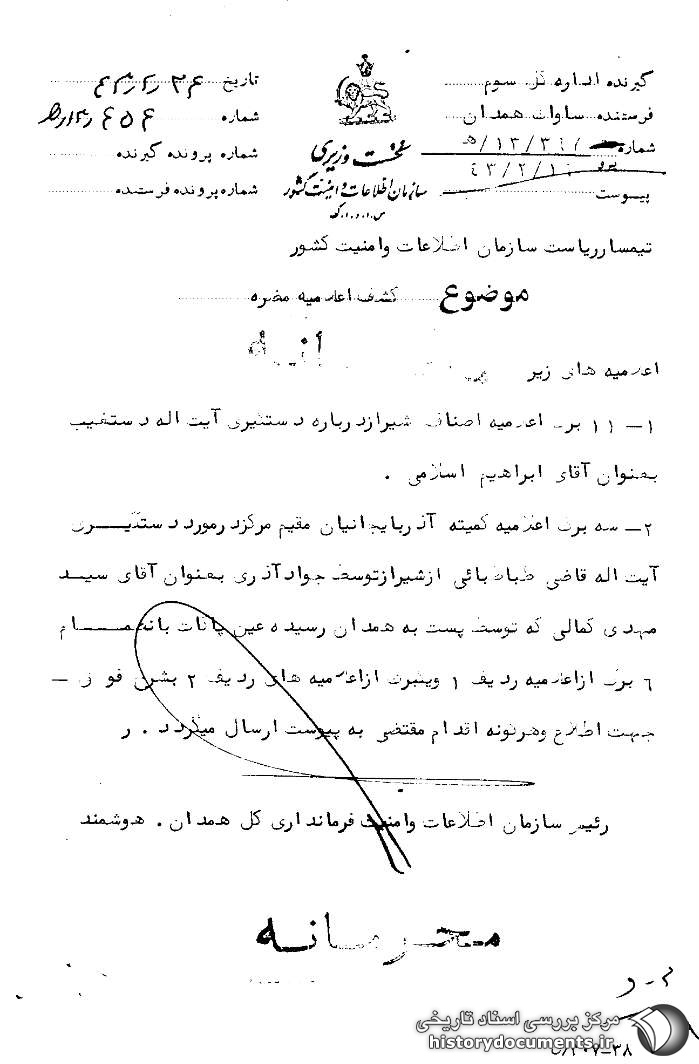 گیرنده اداره کل سوم
تاریخ
فرستنده ساواک همدان
شماره
شماره
شماره پرونده گیرنده
پیوست
شماره پرونده فرستنده
نخست وزیری
سازمان اطلاعات و امنیت کشور
س.ا.و.ا.ک
تیمسار ریاست سازمان اطلاعات وامنیت کشور
موضوع کشف اعلامیه مضره
اعلامیه های زیر
۱- ۱۱ برگ اعلامیه اصناف شیراز درباره دستگیری آیت اله دستغیب
بعنوان آقای ابراهیم اسلامی .
۲- سه برگ اعلامیه کمیته آذربایجانیان مقیم مرکز در مورد دستگیری
آیت اله قاضی طباطبائی از شیراز توسط جواد آذری بعنوان آقای سید
مهدی کمالی که توسط پست به همدان رسیده عین پاکات بانضمام
۶ برگ از اعلامیه ردیف ۱ ویکبرگ از اعلامیه های ردیف ۲ بشرح فوق -
جهت اطلاع وهرگونه اقدام مقتضی به پیوست ارسال میگردد . ر
رئیس سازمان اطلاعات وامنیت فرمانداری کل همدان . هوشمند
محرمانه
مرکز بررسی اسناد تاریخی
historydocuments.ir